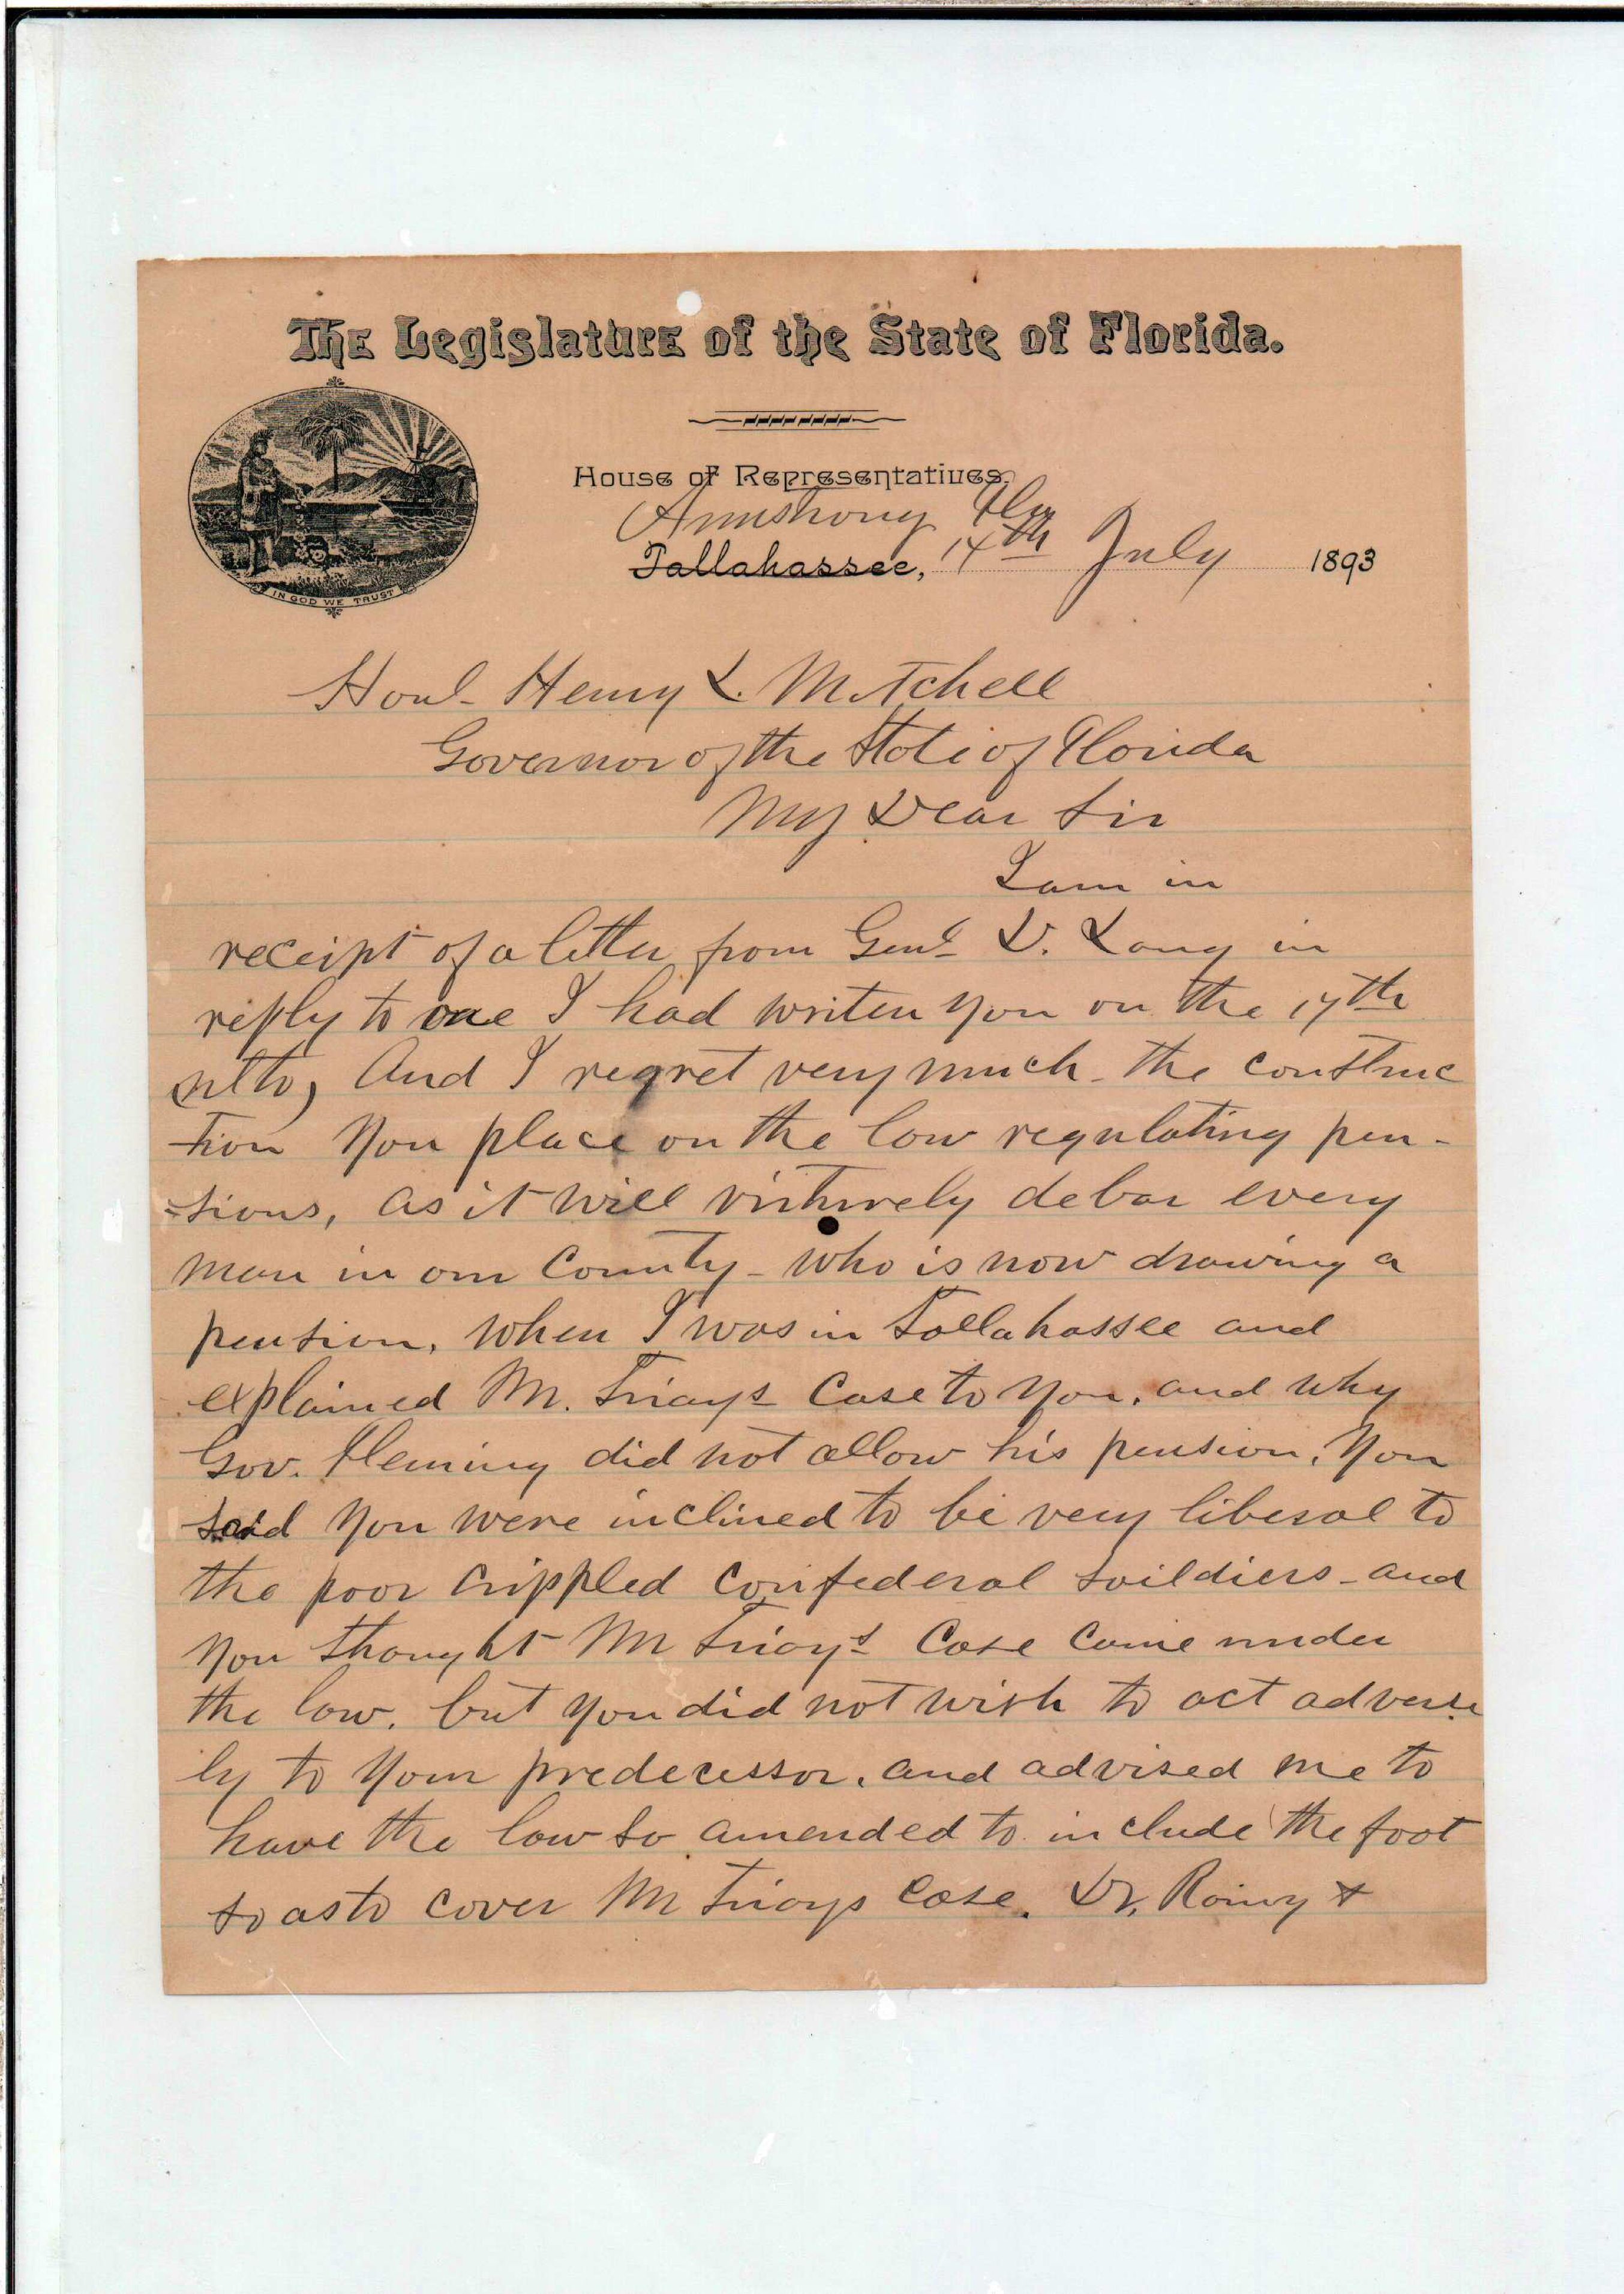 The Legislature of the State of Florida.
House of Representatives.
Armstrong Fla
Tallahassee, 14th July 1893
IN GOD WE TRUST
Honl. Henry L. Mitchell
Governor of the State of Florida
My Dear Sir
I am in
receipt of a letter from Genl D. Lang in
reply to one I had writen you on the 17th
ulto, And I regret very much - the construc
-tion you place on the law regulating pen-
-sions, as it will virturely debar every
man in our County - who is now drawing a
pension, when I was in Tallahassee and
explained M. Triays Case to you, and why
Gov. Fleming did not allow his pension, you
said you were inclined to be very liberal to
the poor crippled confederal soildiers - and
you thought M Triays Case came under
the law, but you did not wish to act adverse
ly to your predecessor, and advised me to
have the law so amended to include the foot
so as to cover M Triays Case. Dr, Rainy &